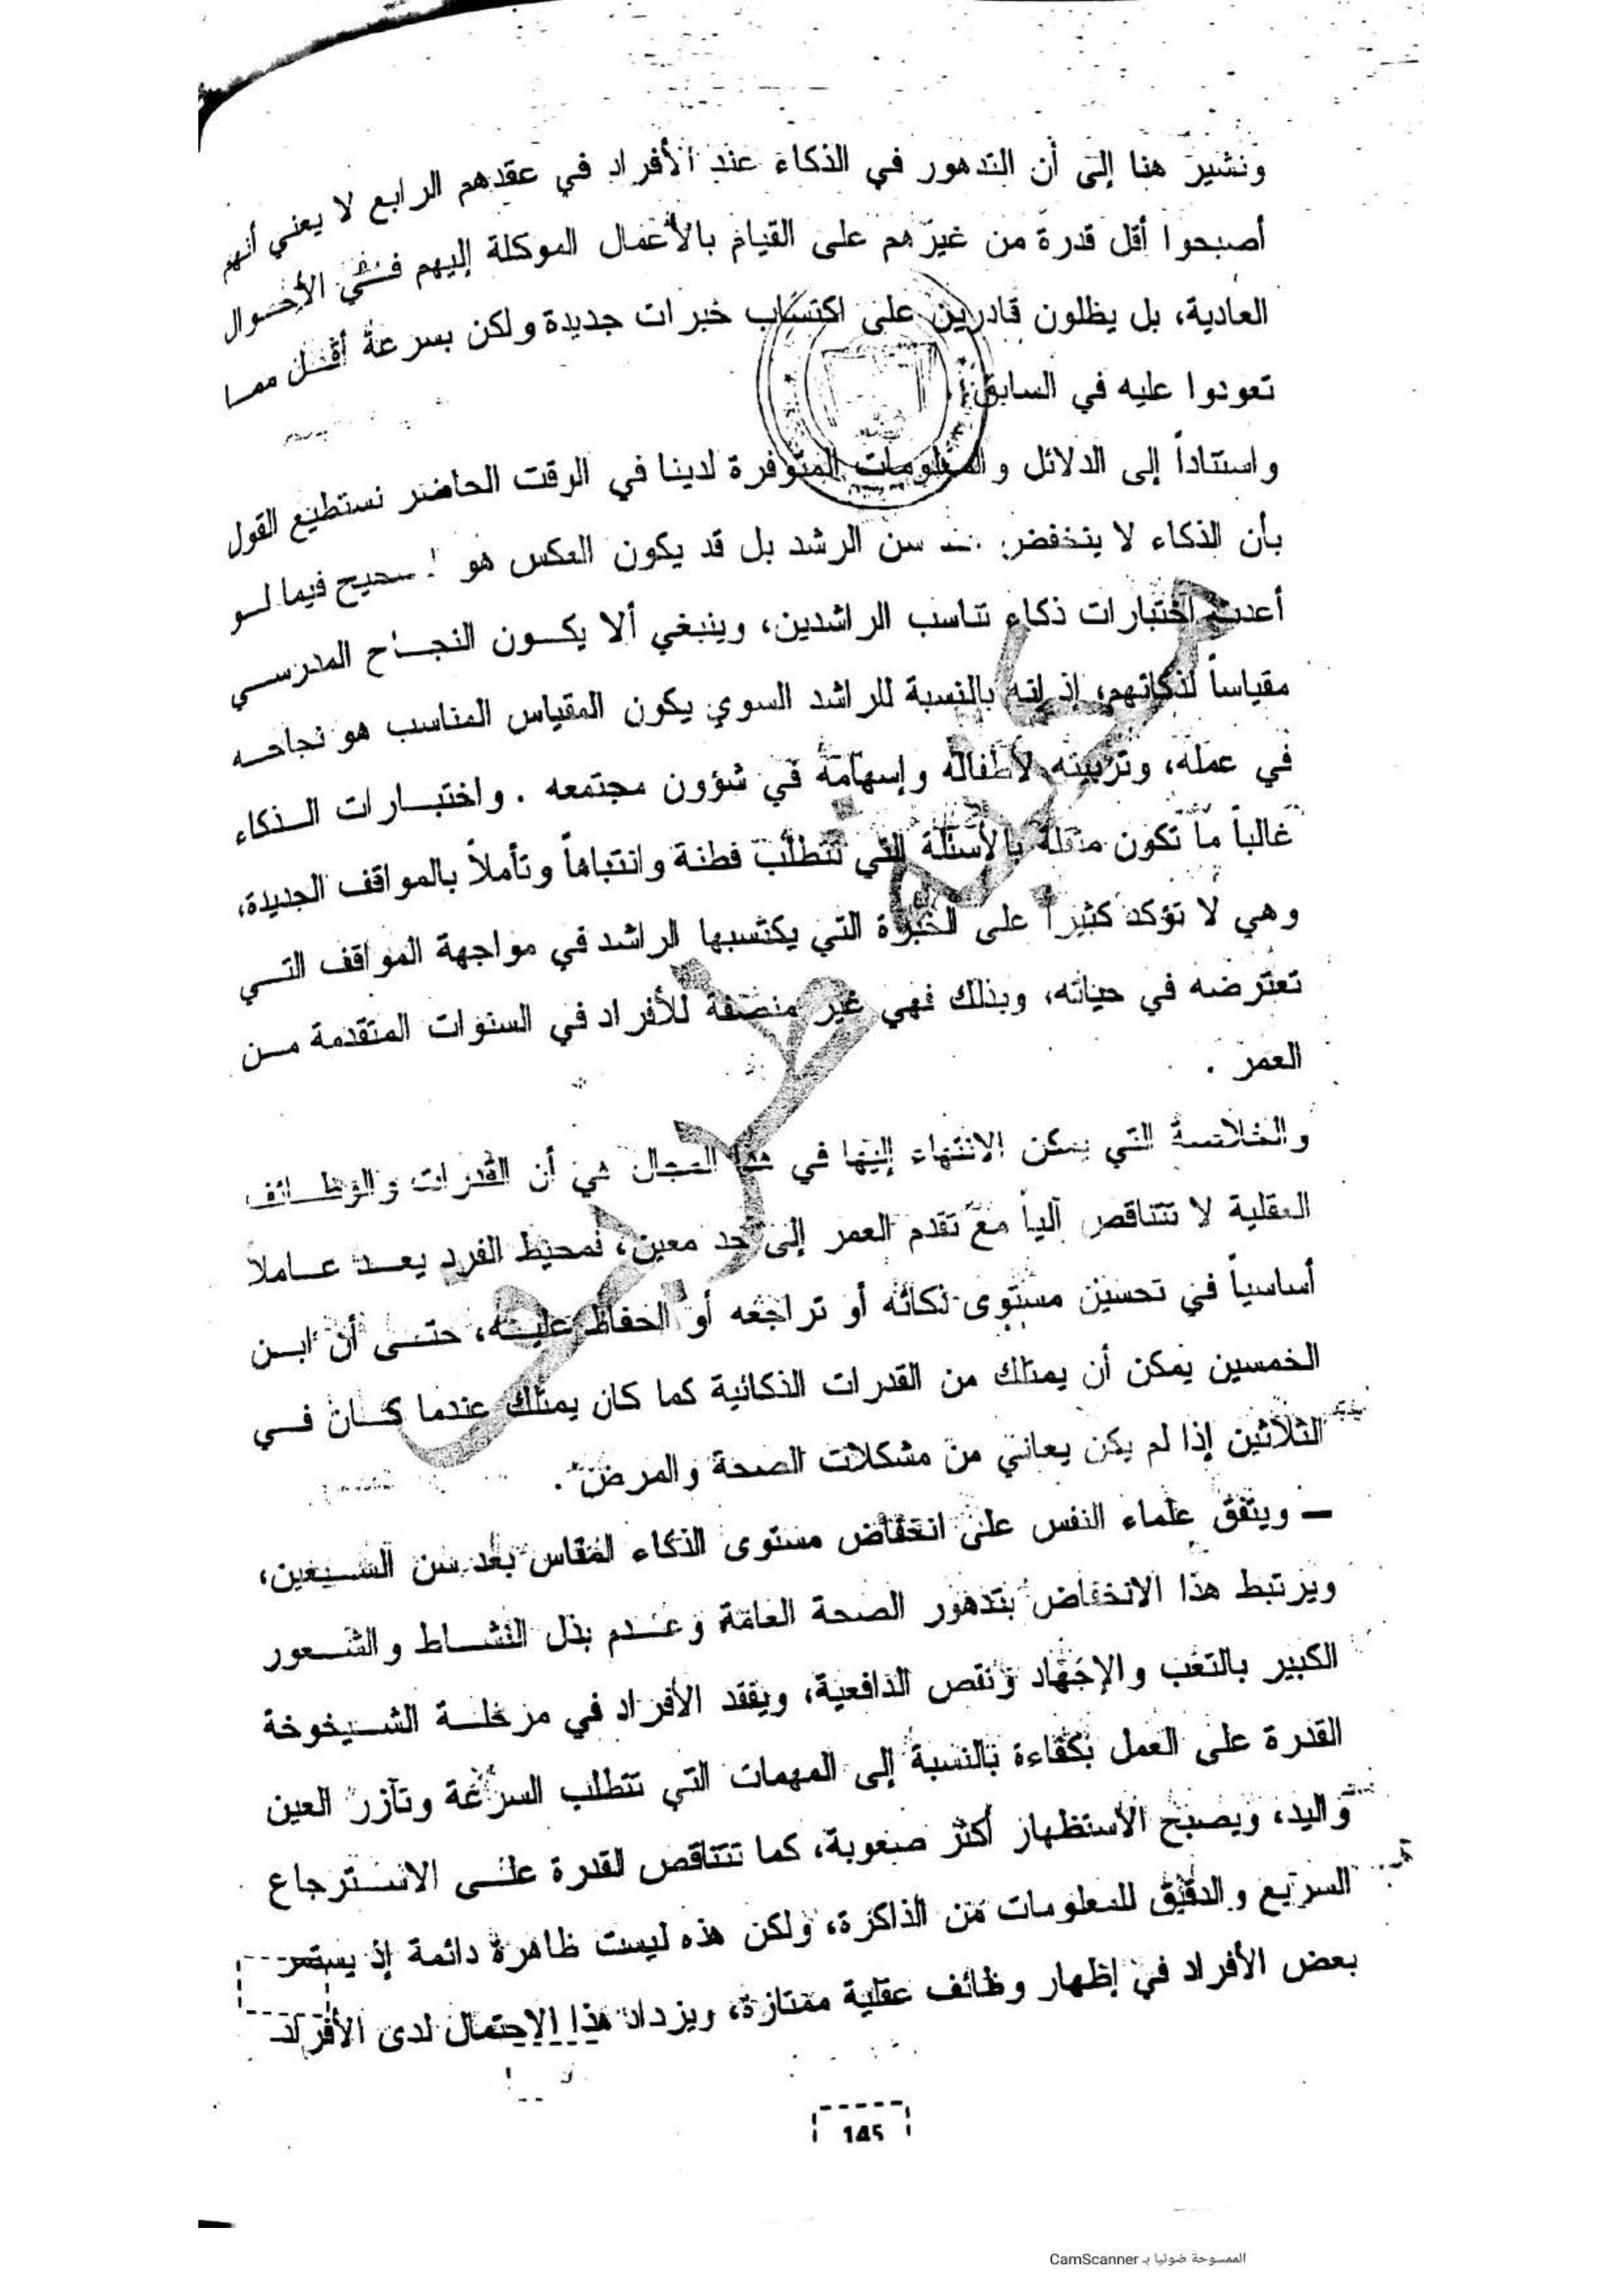 ونشير هنا إلى أن التدهور في الذكاء عند الأفراد في عقدهم الرابع لا يعني أنهم
أصبحوا أقل قدرة من غيرهم على القيام بالأعمال الموكلة إليهم في الأحوال
العادية، بل يظلون قادرين على اكتساب خبرات جديدة ولكن بسرعة أقل مما
تعودوا عليه في السابق.
واستناداً إلى الدلائل والمعلومات المتوفرة لدينا في الوقت الحاضر نستطيع القول
بأن الذكاء لا ينخفض سن الرشد بل قد يكون العكس هو الصحيح فيما لو
أعدت اختبارات ذكاء تناسب الراشدين، وينبغي ألا يكون النجاح المدرسي
مقياساً لذكائهم، إذ إنه بالنسبة للراشد السوي يكون المقياس المناسب هو نجاحه
في عمله، وتربيته لأطفاله وإسهامه في شؤون مجتمعه . واختبارات الذكاء
غالباً ما تكون مثقلة بالأسئلة التي تتطلب فطنة وانتباهاً وتأملاً بالمواقف الجديدة،
وهي لا تؤكد كثيراً على الخبرة التي يكتسبها الراشد في مواجهة المواقف التي
تعترضه في حياته، وبذلك فهي غير منصفة للأفراد في السنوات المتقدمة من
العمر .
والخلاصة التي يمكن الانتهاء إليها في هذا المجال هي أن القدرات والوظائف
العقلية لا تتناقص آلياً مع تقدم العمر إلى حد معين، فمحيط الفرد يعد عاملا
أساسياً في تحسين مستوى ذكائه أو تراجعه أو الحفاظ عليه، حتى أن ابن
الخمسين يمكن أن يمتلك من القدرات الذكائية كما كان يمتلك عندما كان في
الثلاثين إذا لم يكن يعاني من مشكلات الصحة والمرض .
– ويتفق علماء النفس على انخفاض مستوى الذكاء المقاس بعد سن السبعين،
ويرتبط هذا الانخفاض بتدهور الصحة العامة وعدم بذل النشاط والشعور
الكبير بالتعب والإجهاد ونقص الدافعية، ويفقد الأفراد في مرحلة الشيخوخة
القدرة على العمل بكفاءة بالنسبة إلى المهمات التي تتطلب السرعة وتآزر العين
واليد، ويصبح الاستظهار أكثر صعوبة، كما تتناقص القدرة على الاسترجاع
السريع والدقيق للمعلومات من الذاكرة، ولكن هذه ليست ظاهرة دائمة إذ يستمر
بعض الأفراد في إظهار وظائف عقلية ممتازة، ويزداد هذا الاحتمال لدى الأفراد
145
الممسوحة ضوئيا بـ CamScanner